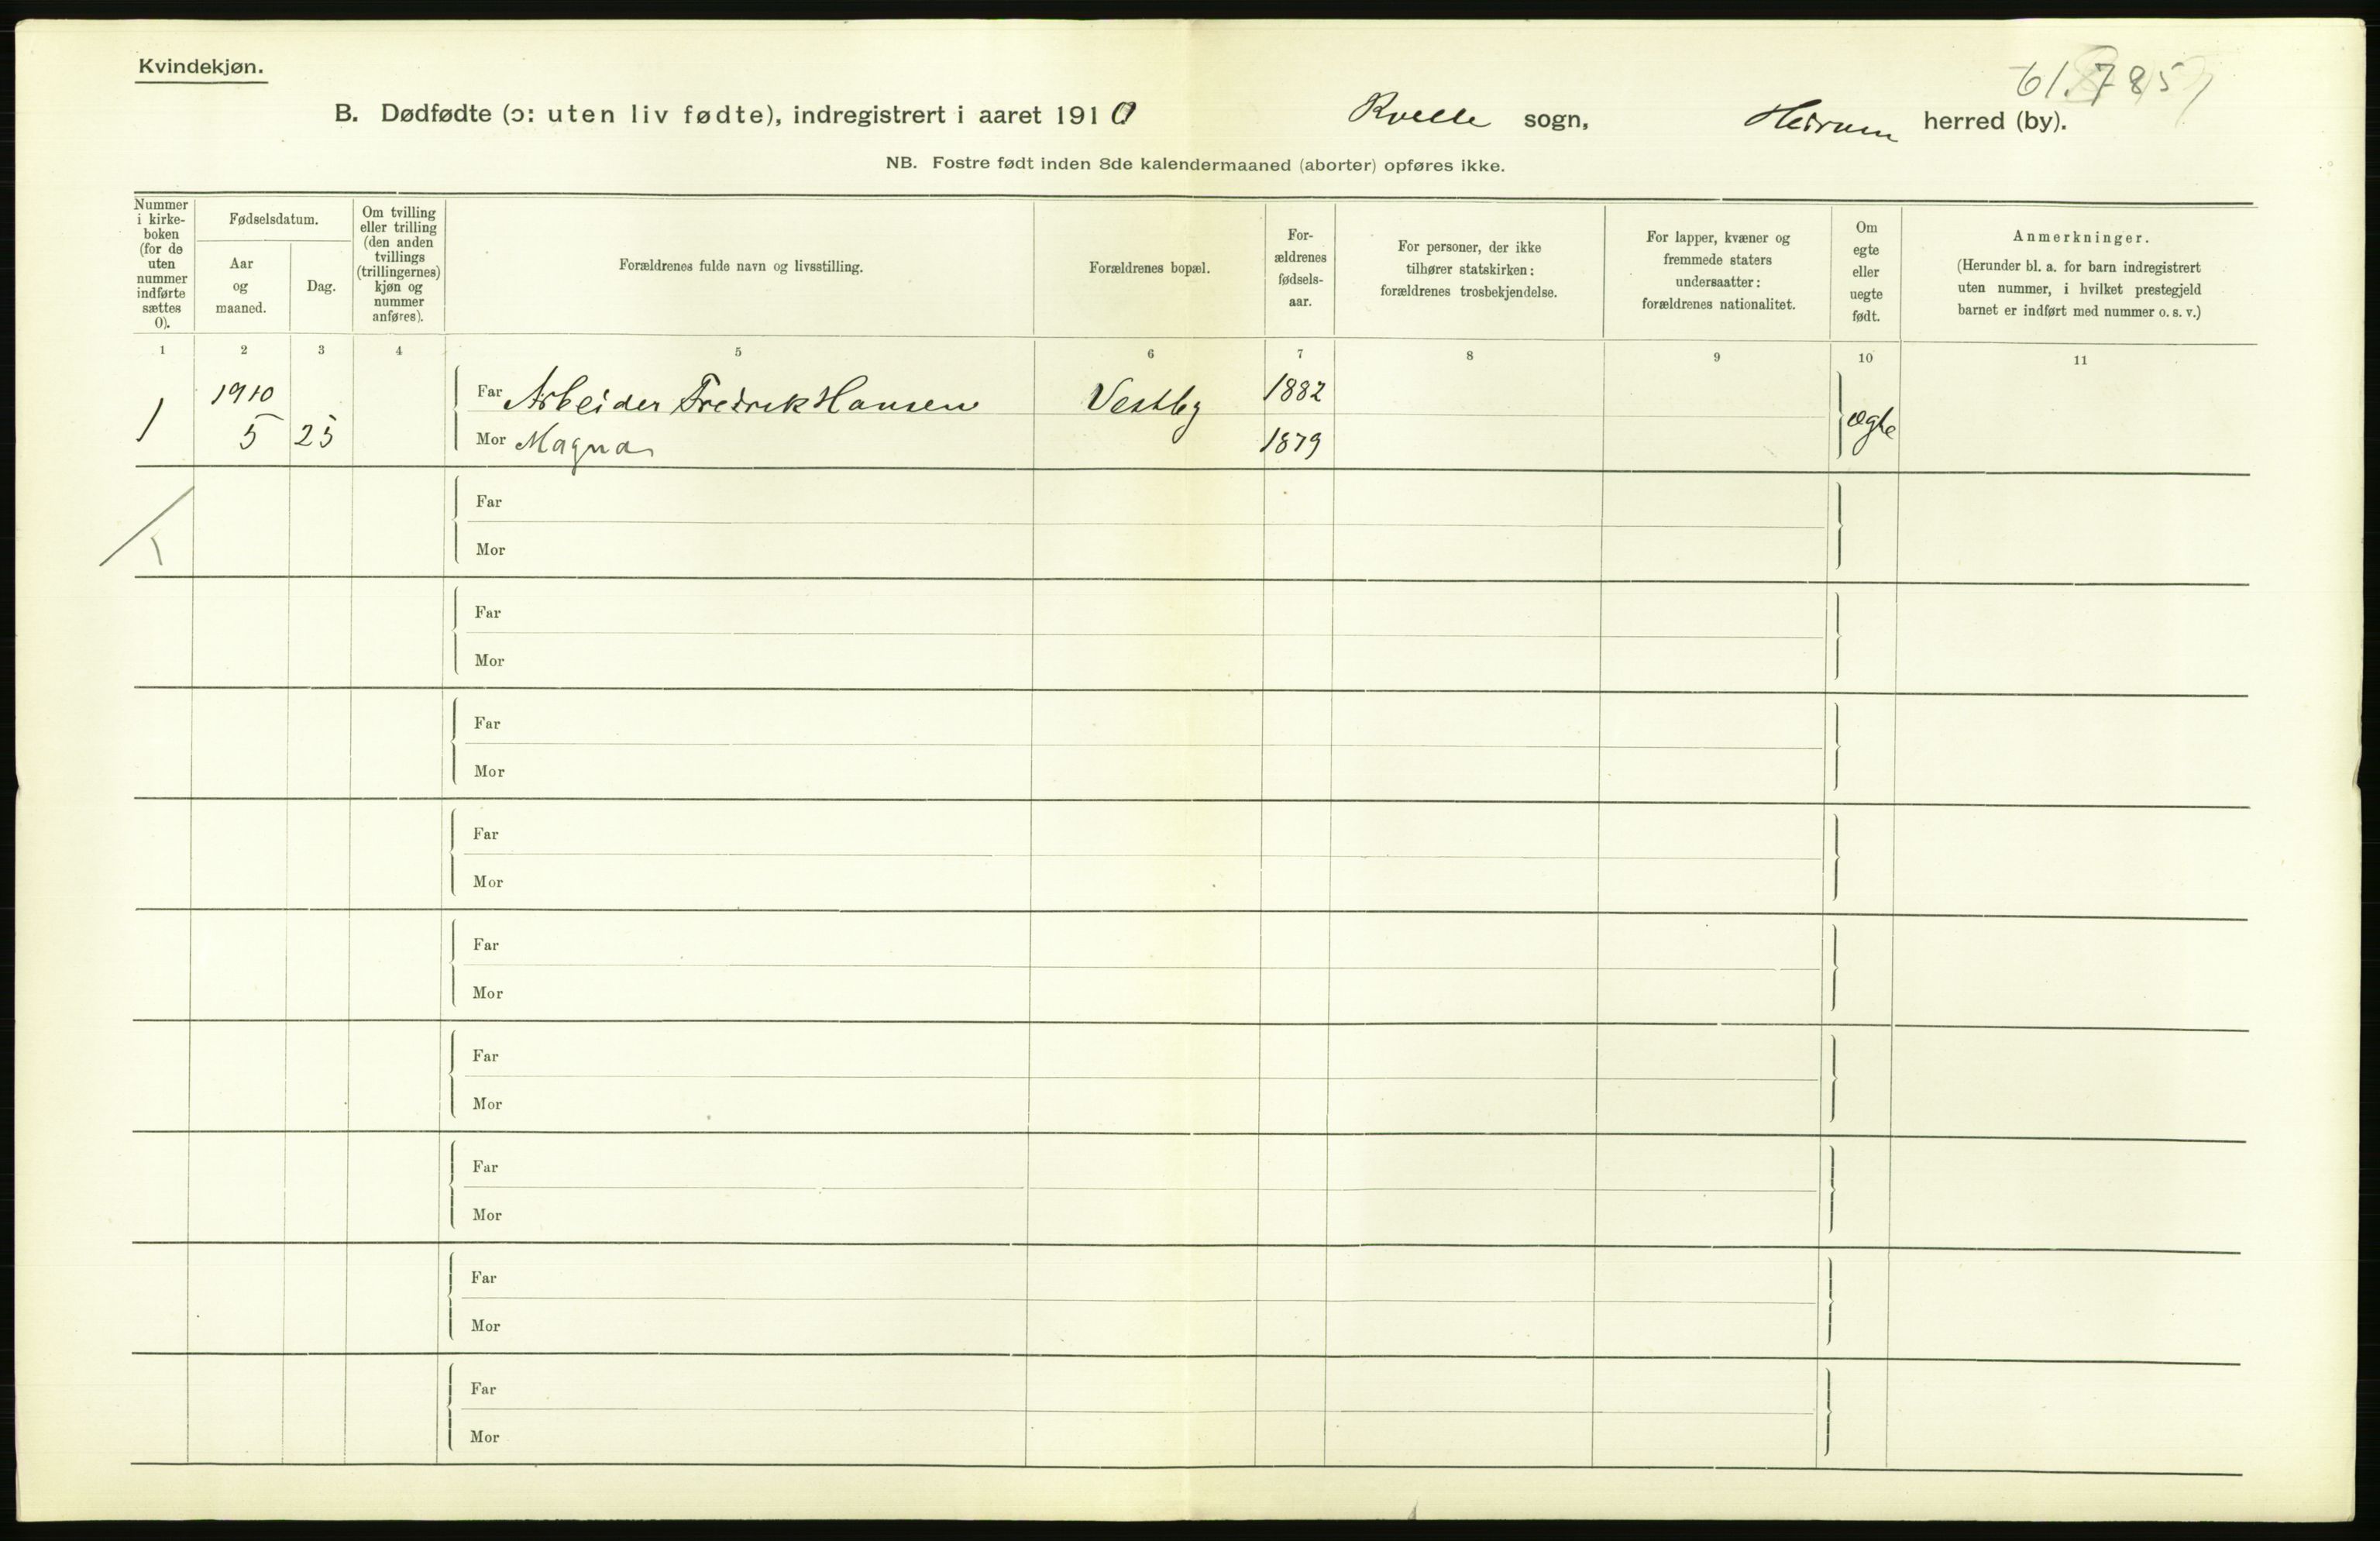 Kvindekjøn.
61.785
B. Dødfødte (ɔ: uten liv fødte), indregistrert i aaret 1910 Kvelle sogn, Hedrum herred (by).
NB. Fostre født inden 8de kalendermaaned (aborter) opføres ikke.
Nummer
i kirke-
boken
(for de
uten
nummer
indførte
sættes
0).
Fødselsdatum.
Aar
og
maaned.
Dag.
Om tvilling
eller trilling
(den anden
tvillings
(trillingernes)
kjøn og
nummer
anføres).
Forældrenes fulde navn og livsstilling.
Forældrenes bopæl.
For-
ældrenes
fødsels-
aar.
For personer, der ikke
tilhører statskirken:
forældrenes trosbekjendelse.
For lapper, kvæner og
fremmede staters
undersaatter:
forældrenes nationalitet.
Om
egte
eller
uegte
født.
Anmerkninger.
(Herunder bl. a. for barn indregistrert
uten nummer, i hvilket prestegjeld
barnet er indført med nummer o. s. v.)
1 2 3 4 5 6 7 8 9 10 11
1 1910 Far Arbeider Fredrik Hansen Vestby 1882 ægte
5 25 Mor Magna 1879
Far
Mor
Far
Mor
Far
Mor
Far
Mor
Far
Mor
Far
Mor
Far
Mor
Far
Mor
Far
Mor